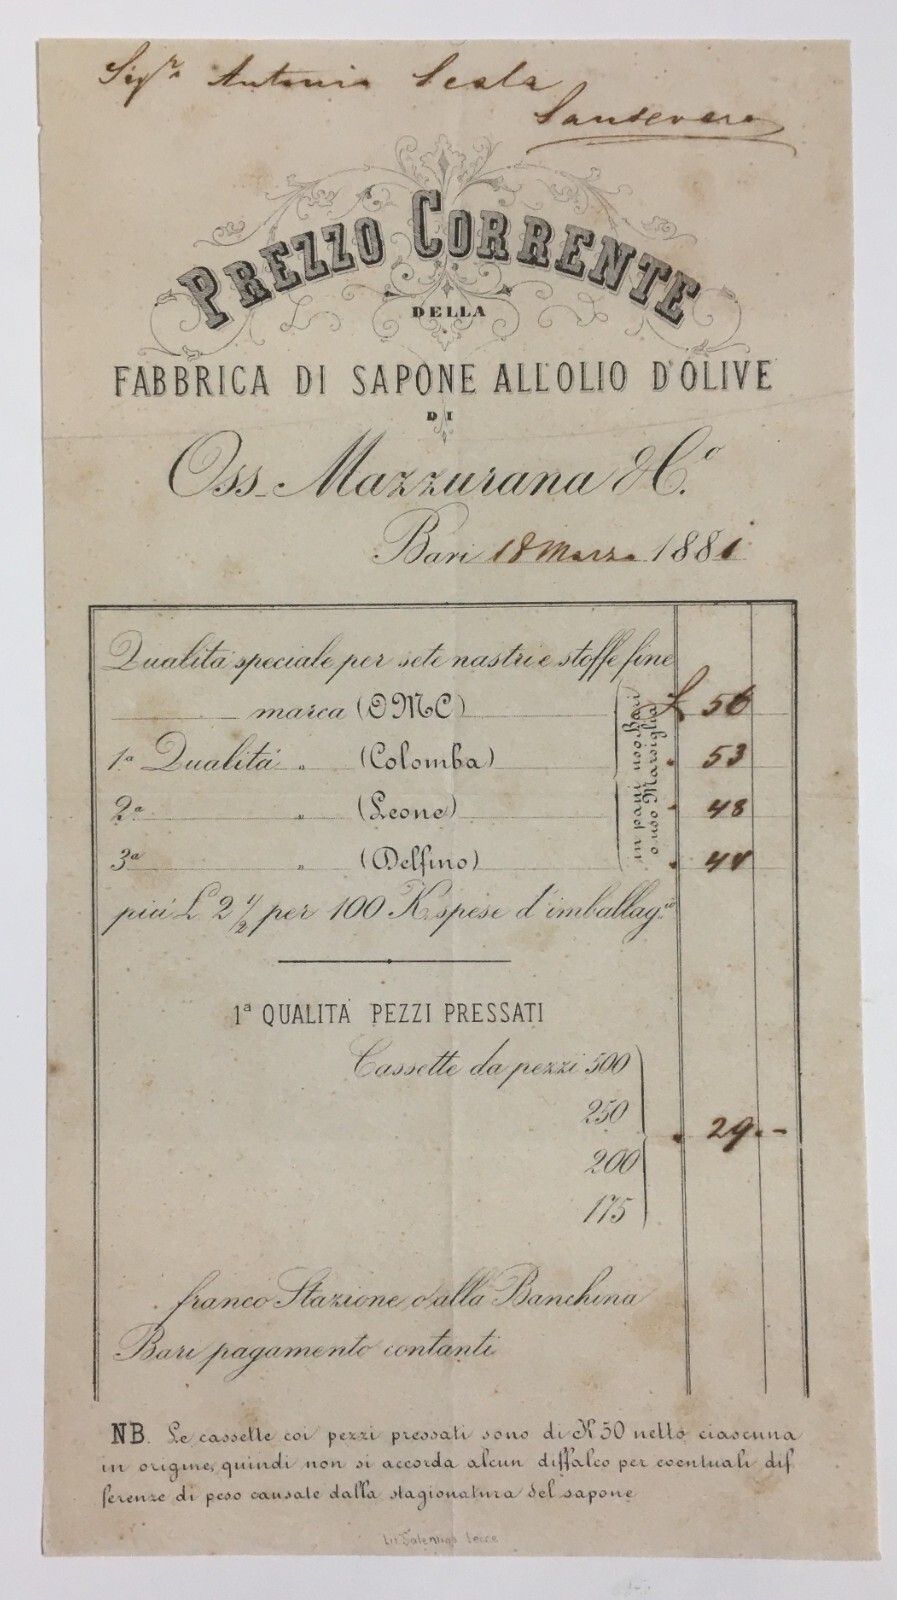 Sigr. Antonio Scala
Sansevero
PREZZO CORRENTE
DELLA
FABBRICA DI SAPONE ALL'OLIO D'OLIVE
DI
Oss-Mazzurana & C.o
Bari 18 Marzo 1881
Qualità speciale per sete nastri e stoffe fine
marca (OMC) £ 56
1a Qualità " (Colomba) " 53
2a " (Leone) " 48
3a " (Delfino) " 44
in pani uso Bari
o uso Marsiglia
più £ 2 1/2 per 100 K. spese d'imballag.io
1a QUALITÀ PEZZI PRESSATI
Cassette da pezzi 500
250
" 29.-
200
175
franco Stazione o alla Banchina
Bari pagamento contanti
NB. Le cassette coi pezzi pressati sono di K 50 netto ciascuna
in origine, quindi non si accorda alcun diffalco per eventuali dif
ferenze di peso causate dalla stagionatura del sapone
Lecce